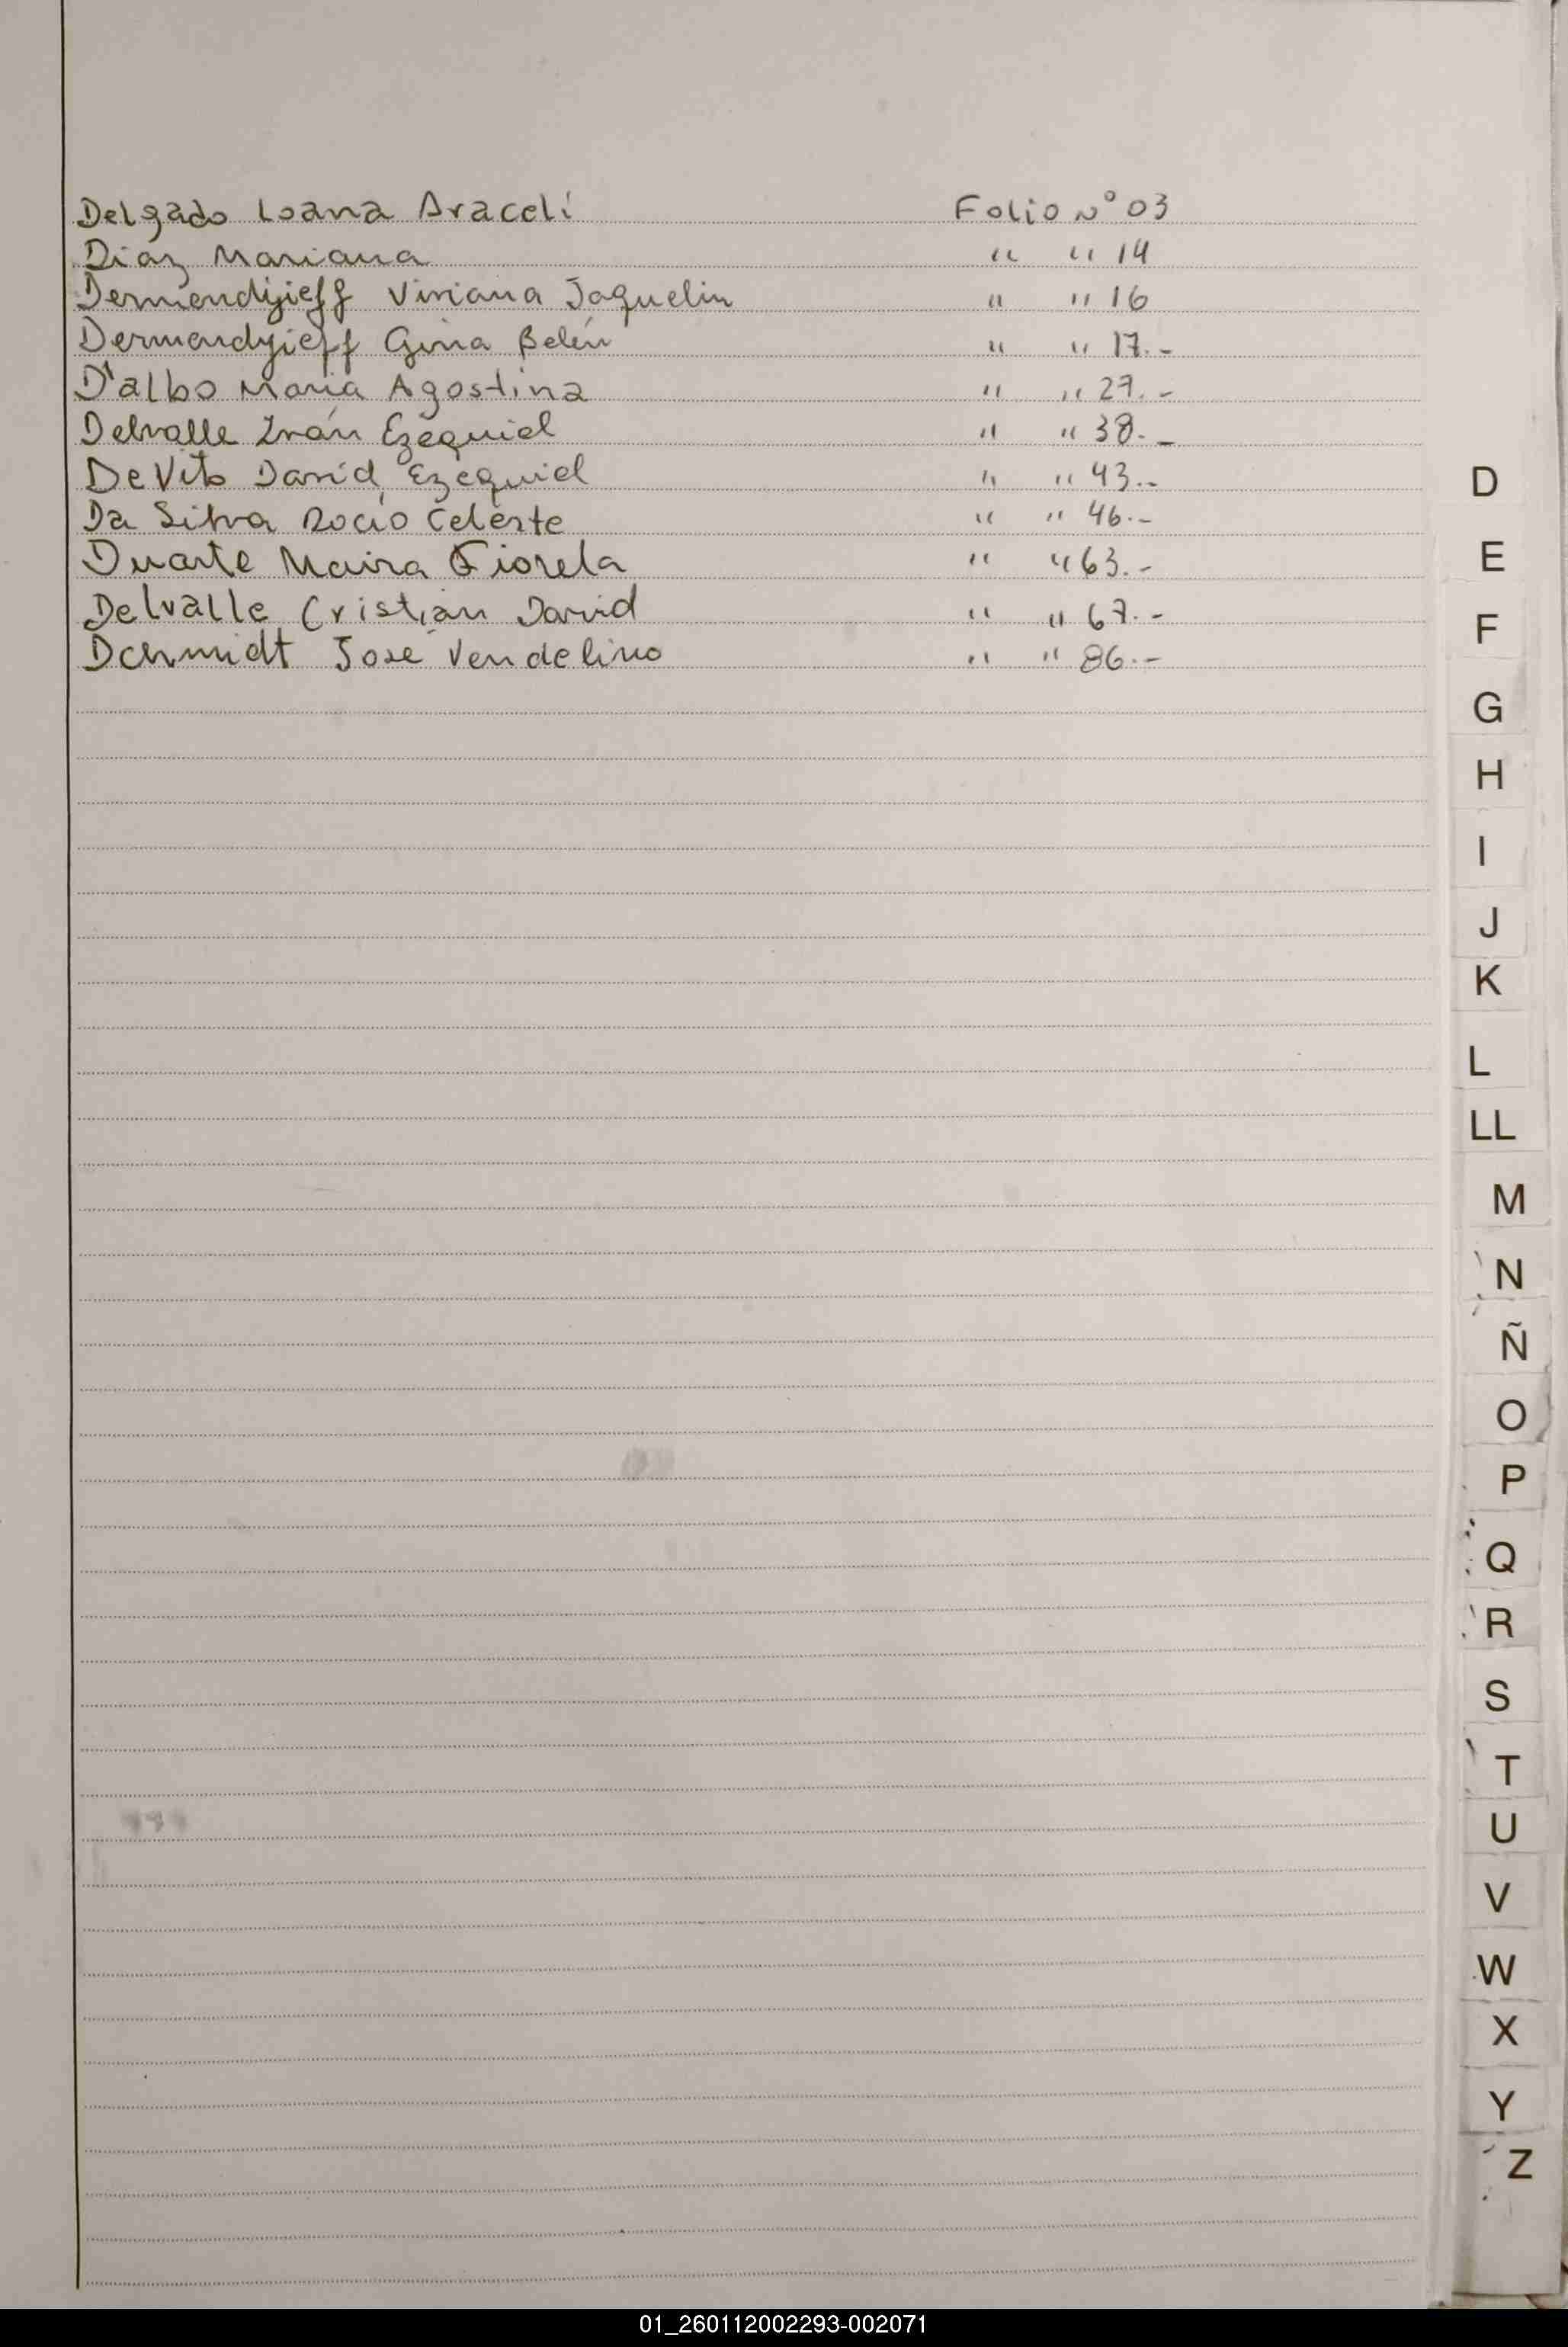 Delgado Loana Araceli Folio N° 03
Diaz Mariana " " 14
Dermendyieff Viviana Jaquelin " " 16
Dermendyieff Gina Belén " " 17.-
D'albo Maria Agostina " " 27.-
Delvalle Iván Ezequiel " " 38.-
De Vito David Ezequiel " " 43.-
Da Silva Rocío Celeste " " 46.-
Duarte Maira Fiorela " " 63.-
Delvalle Cristian David " " 67.-
Dchmidt José Vendelino " " 86.-
D
E
F
G
H
I
J
K
L
LL
M
N
Ñ
O
P
Q
R
S
T
U
V
W
X
Y
Z
01_260112002293-002071